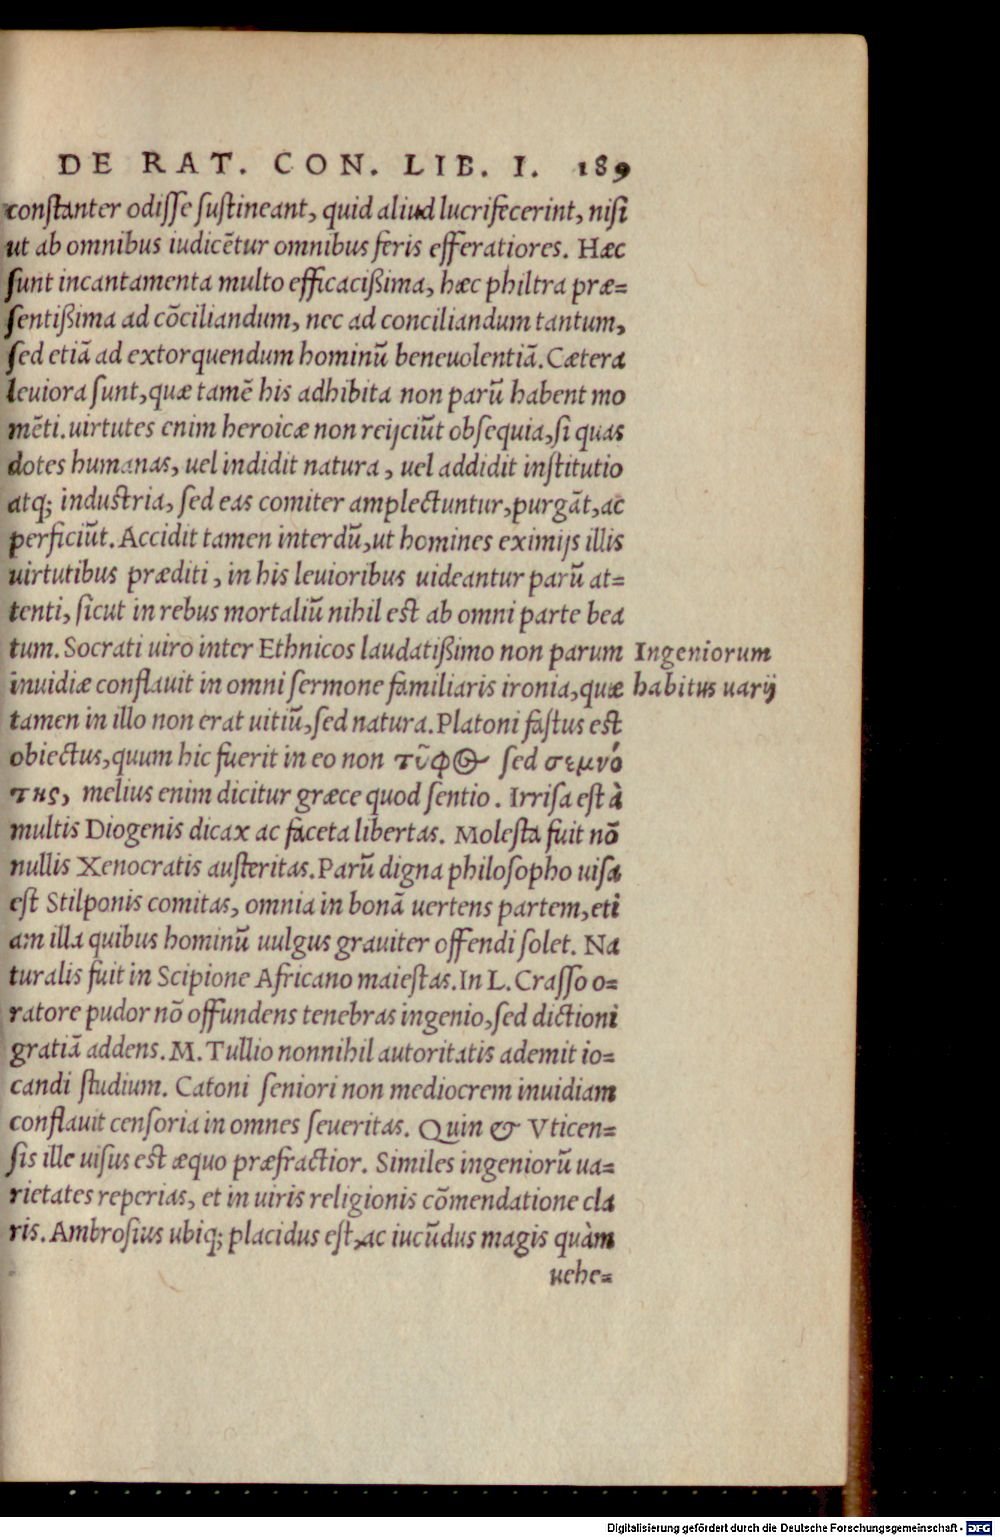 DE RAT. CON. LIB. I. 189
constanter odisse sustineant, quid aliud lucrifecerint, nisi
ut ab omnibus iudicẽtur omnibus feris efferatiores. Hæc
sunt incantamenta multo efficacißima, hæc philtra præ=
sentißima ad cõciliandum, nec ad conciliandum tantum,
sed etiã ad extorquendum hominũ beneuolentiã. Cætera
leuiora sunt, quæ tamẽ his adhibita non parũ habent mo
mẽti. uirtutes enim heroicæ non reijciũt obsequia, si quas
dotes humanas, uel indidit natura, uel addidit institutio
atq; industria, sed eas comiter amplectuntur, purgãt, ac
perficiũt. Accidit tamen interdũ, ut homines eximijs illis
uirtutibus præditi, in his leuioribus uideantur parũ at=
tenti, sicut in rebus mortaliũ nihil est ab omni parte bea
tum. Socrati uiro inter Ethnicos laudatißimo non parum
Ingeniorum
inuidiæ conflauit in omni sermone familiaris ironia, quæ
habitus uarij
tamen in illo non erat uitiũ, sed natura. Platoni fastus est
obiectus, quum hic fuerit in eo non τῦφΘ sed σεμνό
της, melius enim dicitur græce quod sentio. Irrisa est à
multis Diogenis dicax ac faceta libertas. Molesta fuit nõ
nullis Xenocratis austeritas. Parũ digna philosopho uisa
est Stilponis comitas, omnia in bonã uertens partem, eti
am illa quibus hominũ uulgus grauiter offendi solet. Na
turalis fuit in Scipione Africano maiestas. In L. Crasso o=
ratore pudor nõ offundens tenebras ingenio, sed dictioni
gratiã addens. M. Tullio nonnihil autoritatis ademit io=
candi studium. Catoni seniori non mediocrem inuidiam
conflauit censoria in omnes seueritas. Quin & Vticen=
sis ille uisus est æquo præfractior. Similes ingeniorũ ua=
rietates reperias, et in uiris religionis cõmendatione cla
ris. Ambrosius ubiq; placidus est, ac iucũdus magis quàm
uehe=
Digitalisierung gefördert durch die Deutsche Forschungsgemeinschaft - DFG